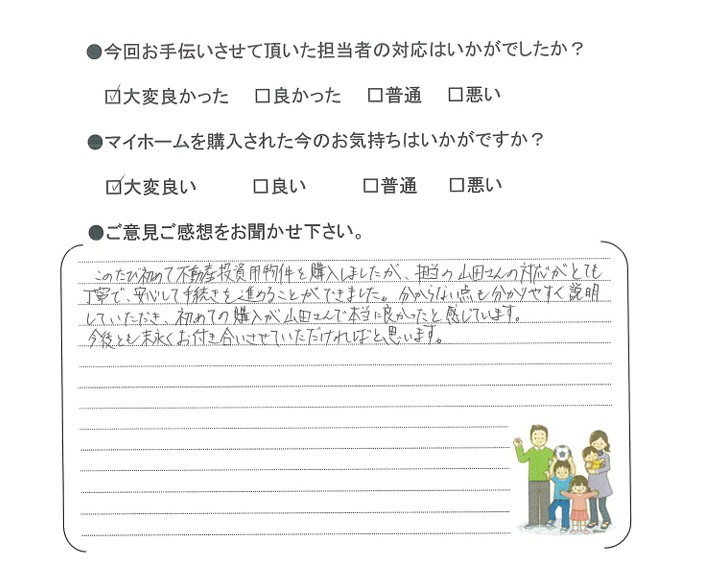 ●今回お手伝いさせて頂いた担当者の対応はいかがでしたか？
☑大変良かった　□良かった　□普通　□悪い
●マイホームを購入された今のお気持ちはいかがですか？
☑大変良い　□良い　□普通　□悪い
●ご意見ご感想をお聞かせ下さい。
このたび初めて不動産投資用物件を購入しましたが、担当の山田さんの対応がとても
丁寧で、安心して手続きを進めることができました。分からない点も分かりやすく説明
していただき、初めての購入が山田さんで本当に良かったと感じています。
今後とも末永くお付き合いさせていただければと思います。